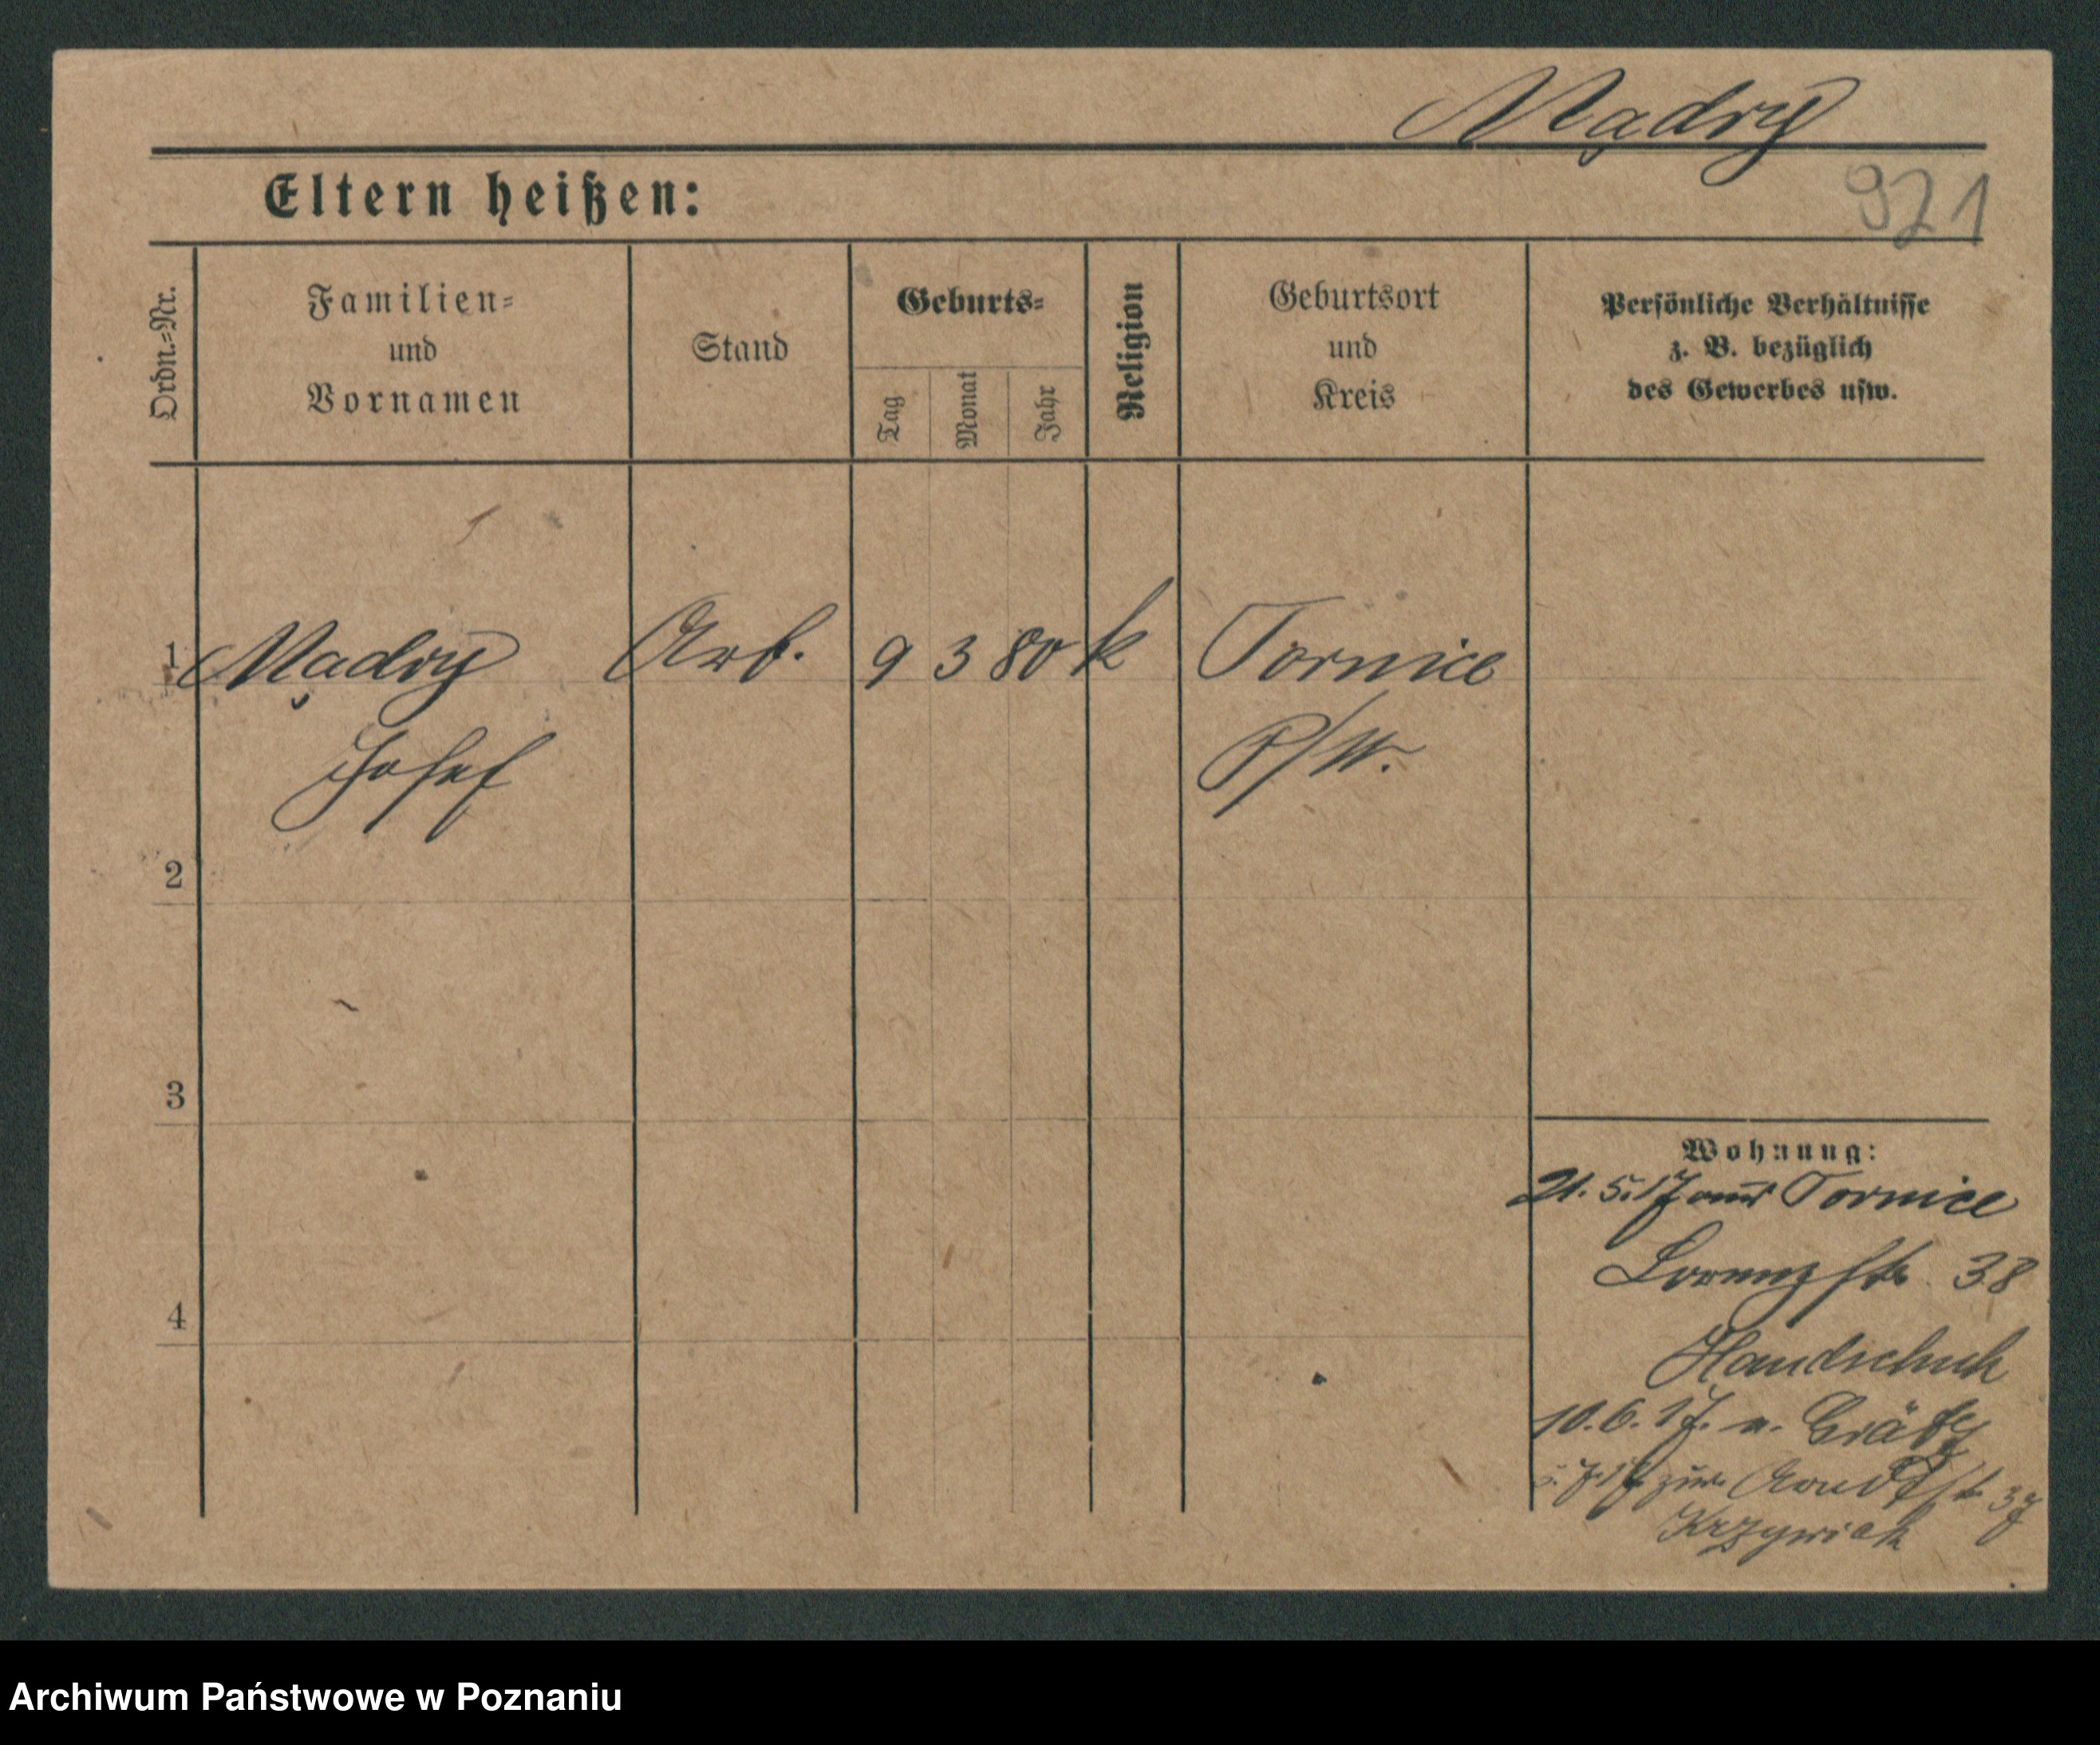 Mądry
921
Eltern heißen:
Ordn.=Nr.
Familien=
und
Vornamen
Stand
Geburts=
Tag
Monat
Jahr
Religion
Geburtsort
und
Kreis
Persönliche Verhältnisse
z. B. bezüglich
des Gewerbes usw.
1 Mądry Arb. 9 3 80 k Tornice
Josef P/W.
2
3
4
Wohnung:
21. 5. 17 aus Tornice
Lorenzstr. 38
Handschuh
10. 6. 17. n. Grätz
7. 17 zur. Arndtstr 37
Krzywiak
Archiwum Państwowe w Poznaniu